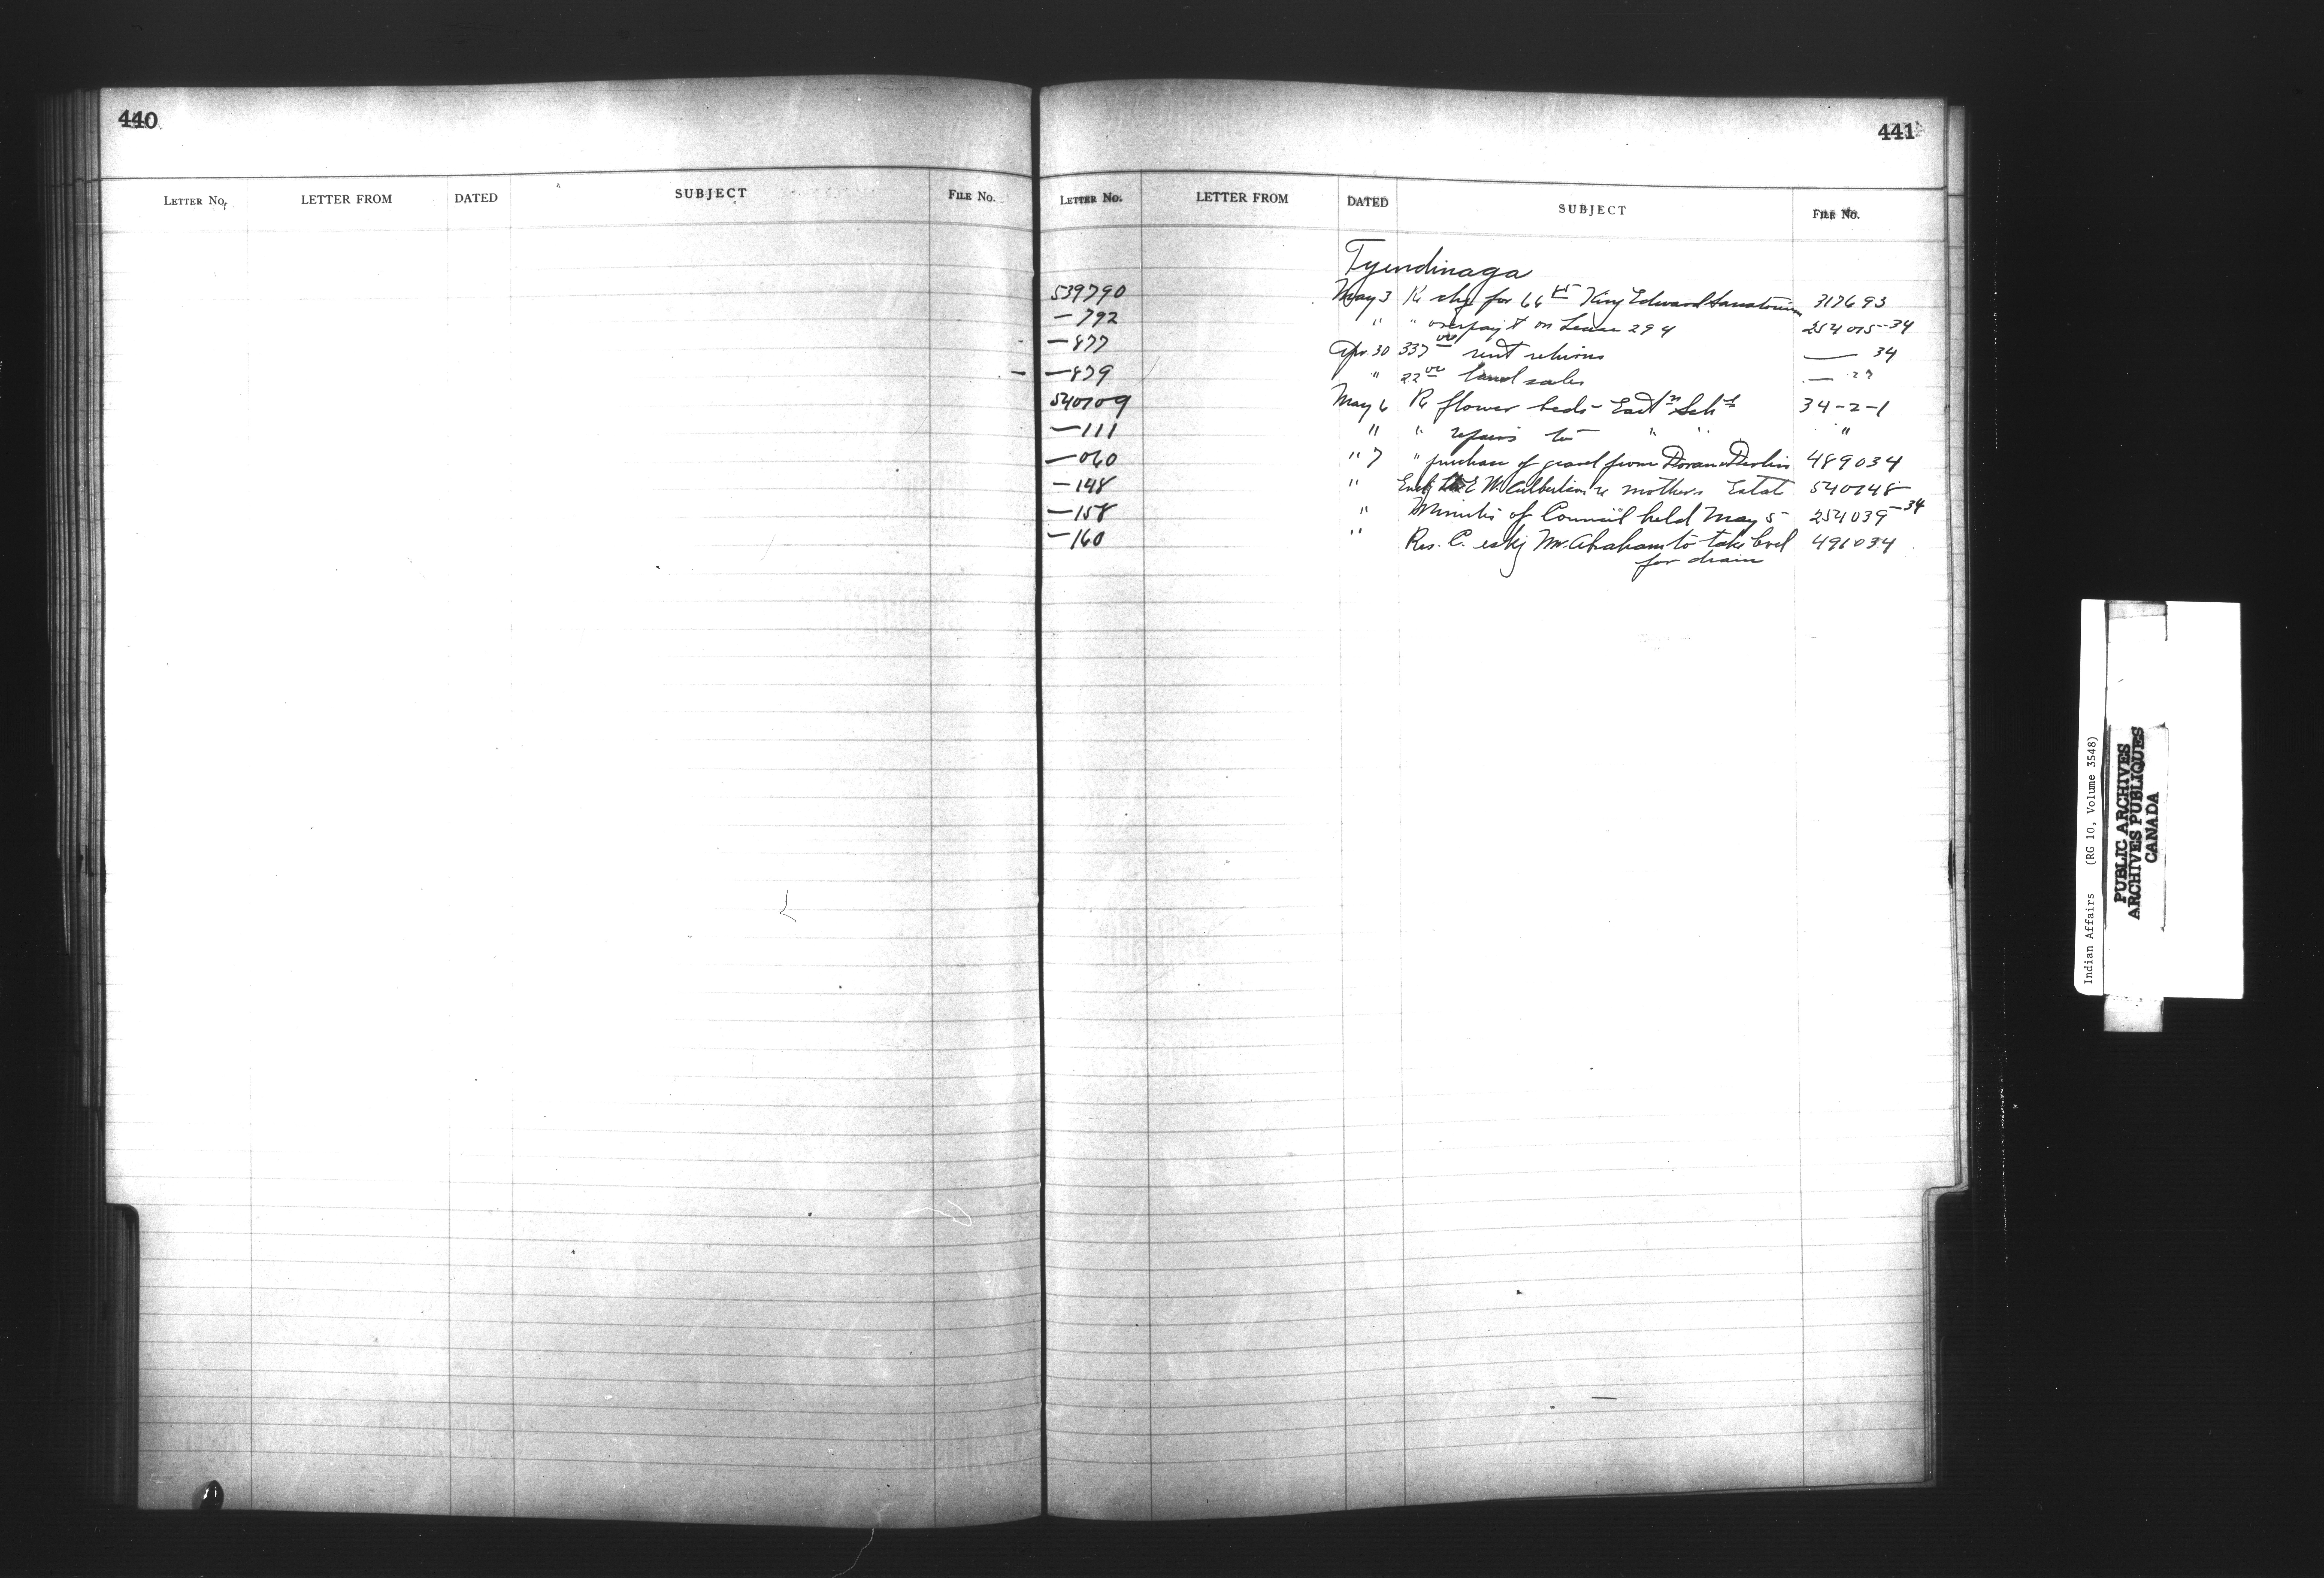 440
441
LETTER No. LETTER FROM DATED SUBJECT FILE No.
LETTER No. LETTER FROM DATED SUBJECT FILE No.
Tyendinaga
539790 May 3 Re chq for 66 King Edward Sanatorium 317693
— 792 " " overpay't on Lease 294 254015-34
— 877 Apr. 30 337 00 rent returns — 34
— 879 " 22 00 land sales —
540109 May 6 Re flower beds - East'n Sch 34-2-1
— 111 " " repairs to " " "
— 060 " 7 " purchase of gravel from Doran 489034
— 148 " E W Culbertson re mothers Estate 540148
— 158 " Minutes of Council held May 5 254039-34
— 160 " Res. C. askg Mr. Abraham to take level 491034
for drain
Indian Affairs (RG 10, Volume 3548)
PUBLIC ARCHIVES
ARCHIVES PUBLIQUES
CANADA